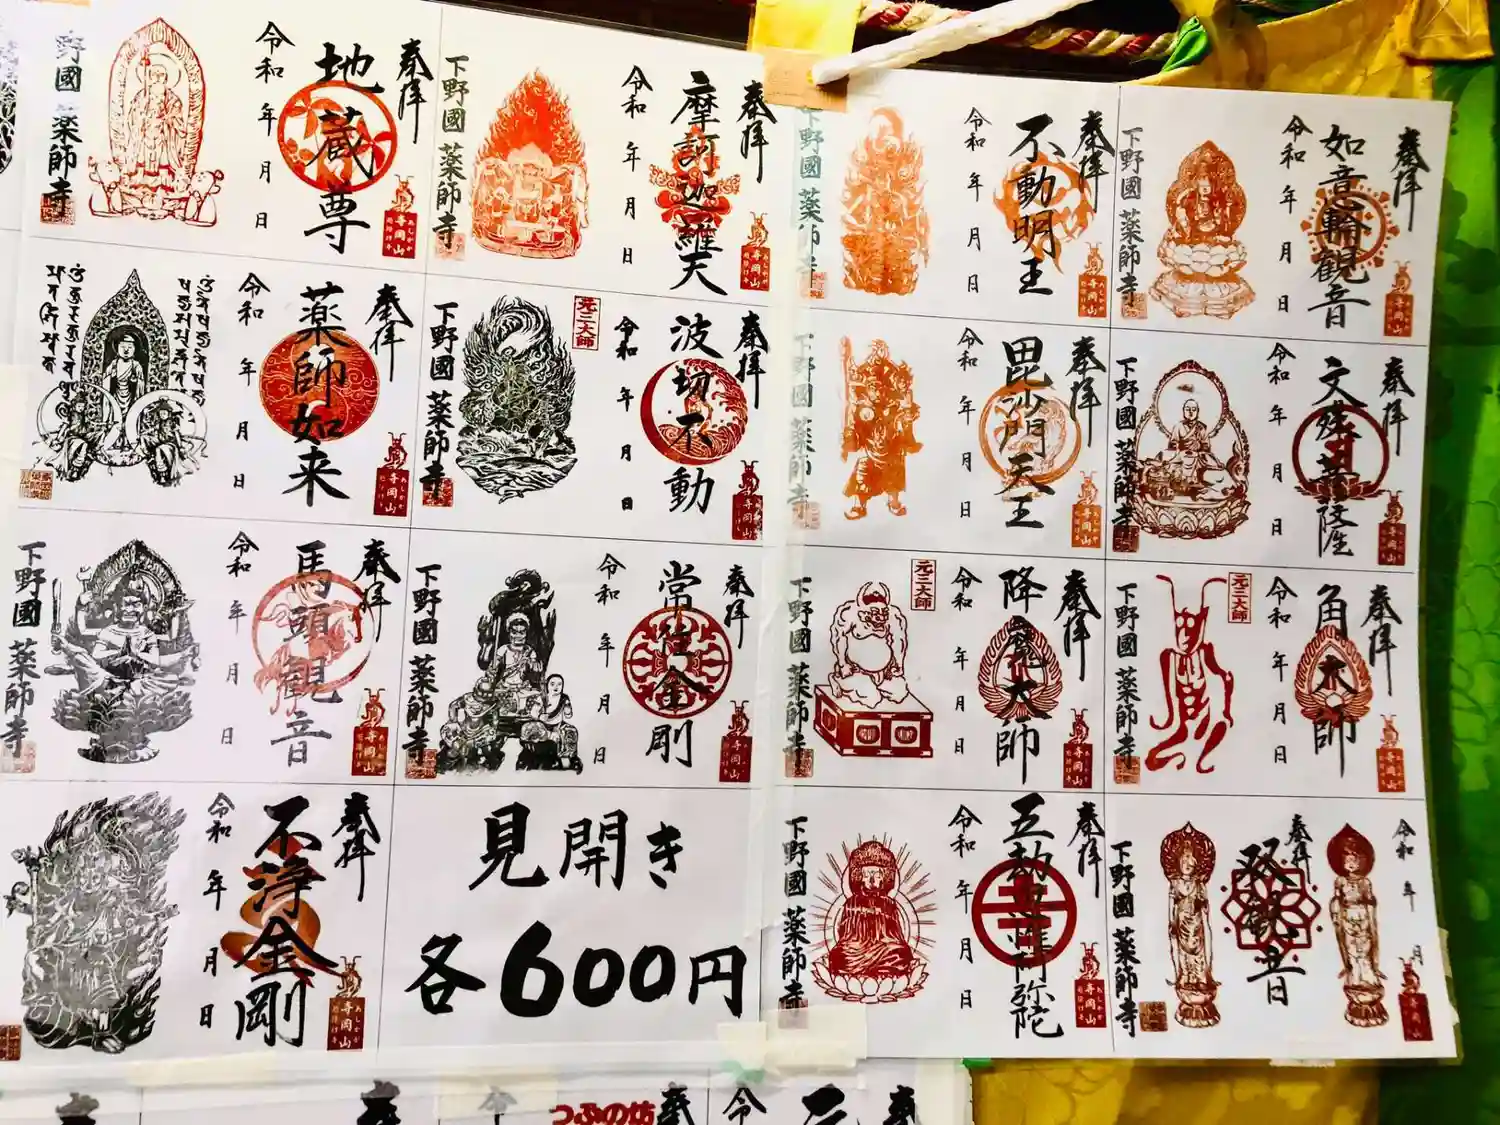 奉拝
地蔵尊
令和 年 月 日
野國 薬師寺
寺岡山
奉拝
摩訶迦羅天
令和 年 月 日
下野國 薬師寺
寺岡山
奉拝
不動明王
令和 年 月 日
下野國 薬師寺
寺岡山
奉拝
如意輪観音
令和 年 月 日
下野國 薬師寺
寺岡山
奉拝
薬師如来
令和 年 月 日
寺岡山
奉拝
波切不動
元三大師
令和 年 月 日
下野國 薬師寺
寺岡山
奉拝
毘沙門天王
令和 年 月 日
下野國 薬師寺
寺岡山
奉拝
文殊菩薩
令和 年 月 日
下野國 薬師寺
寺岡山
奉拝
馬頭観音
令和 年 月 日
下野國 薬師寺
寺岡山
奉拝
常住金剛
令和 年 月 日
下野國 薬師寺
寺岡山
奉拝
降魔大師
元三大師
令和 年 月 日
下野國 薬師寺
寺岡山
奉拝
角大師
元三大師
令和 年 月 日
下野國 薬師寺
寺岡山
奉拝
不浄金剛
令和 年 月 日
寺岡山
見開き
各600円
奉拝
五劫思惟阿弥陀
令和 年 月 日
下野國 薬師寺
寺岡山
奉拝
双観音
令和 年 月 日
下野國 薬師寺
寺岡山
つぶの坊
奉
令